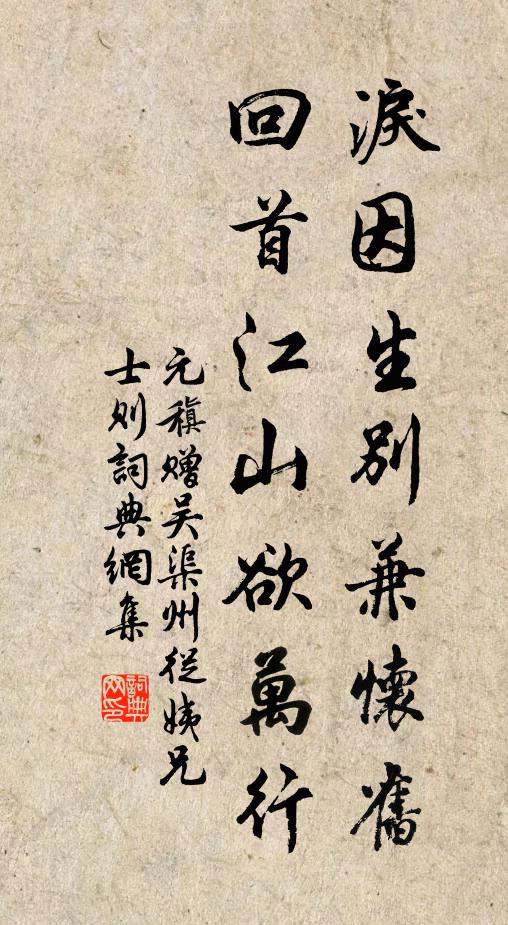 淚因生別兼懷舊
回首江山欲萬行
元稹贈吴渠州從姨兄
士則詞典網集
詞典
网印